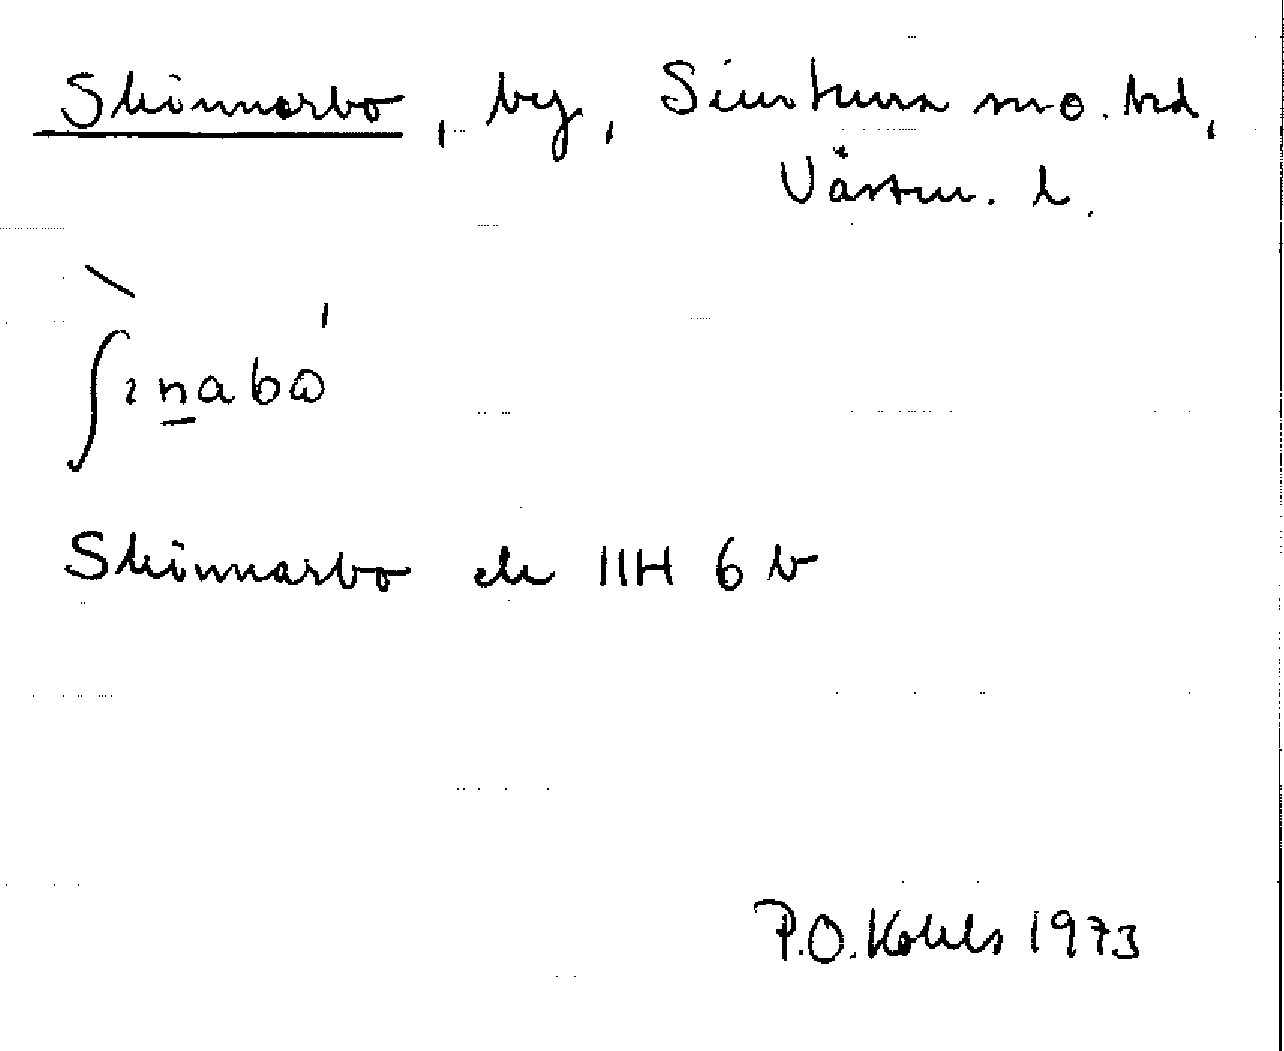 Skinnarbo, by, Simtuna sn o. hd,
Västm. l.
ʃınabo
Skinnarbo ek 11H 6 b
P.O. Kohls 1973